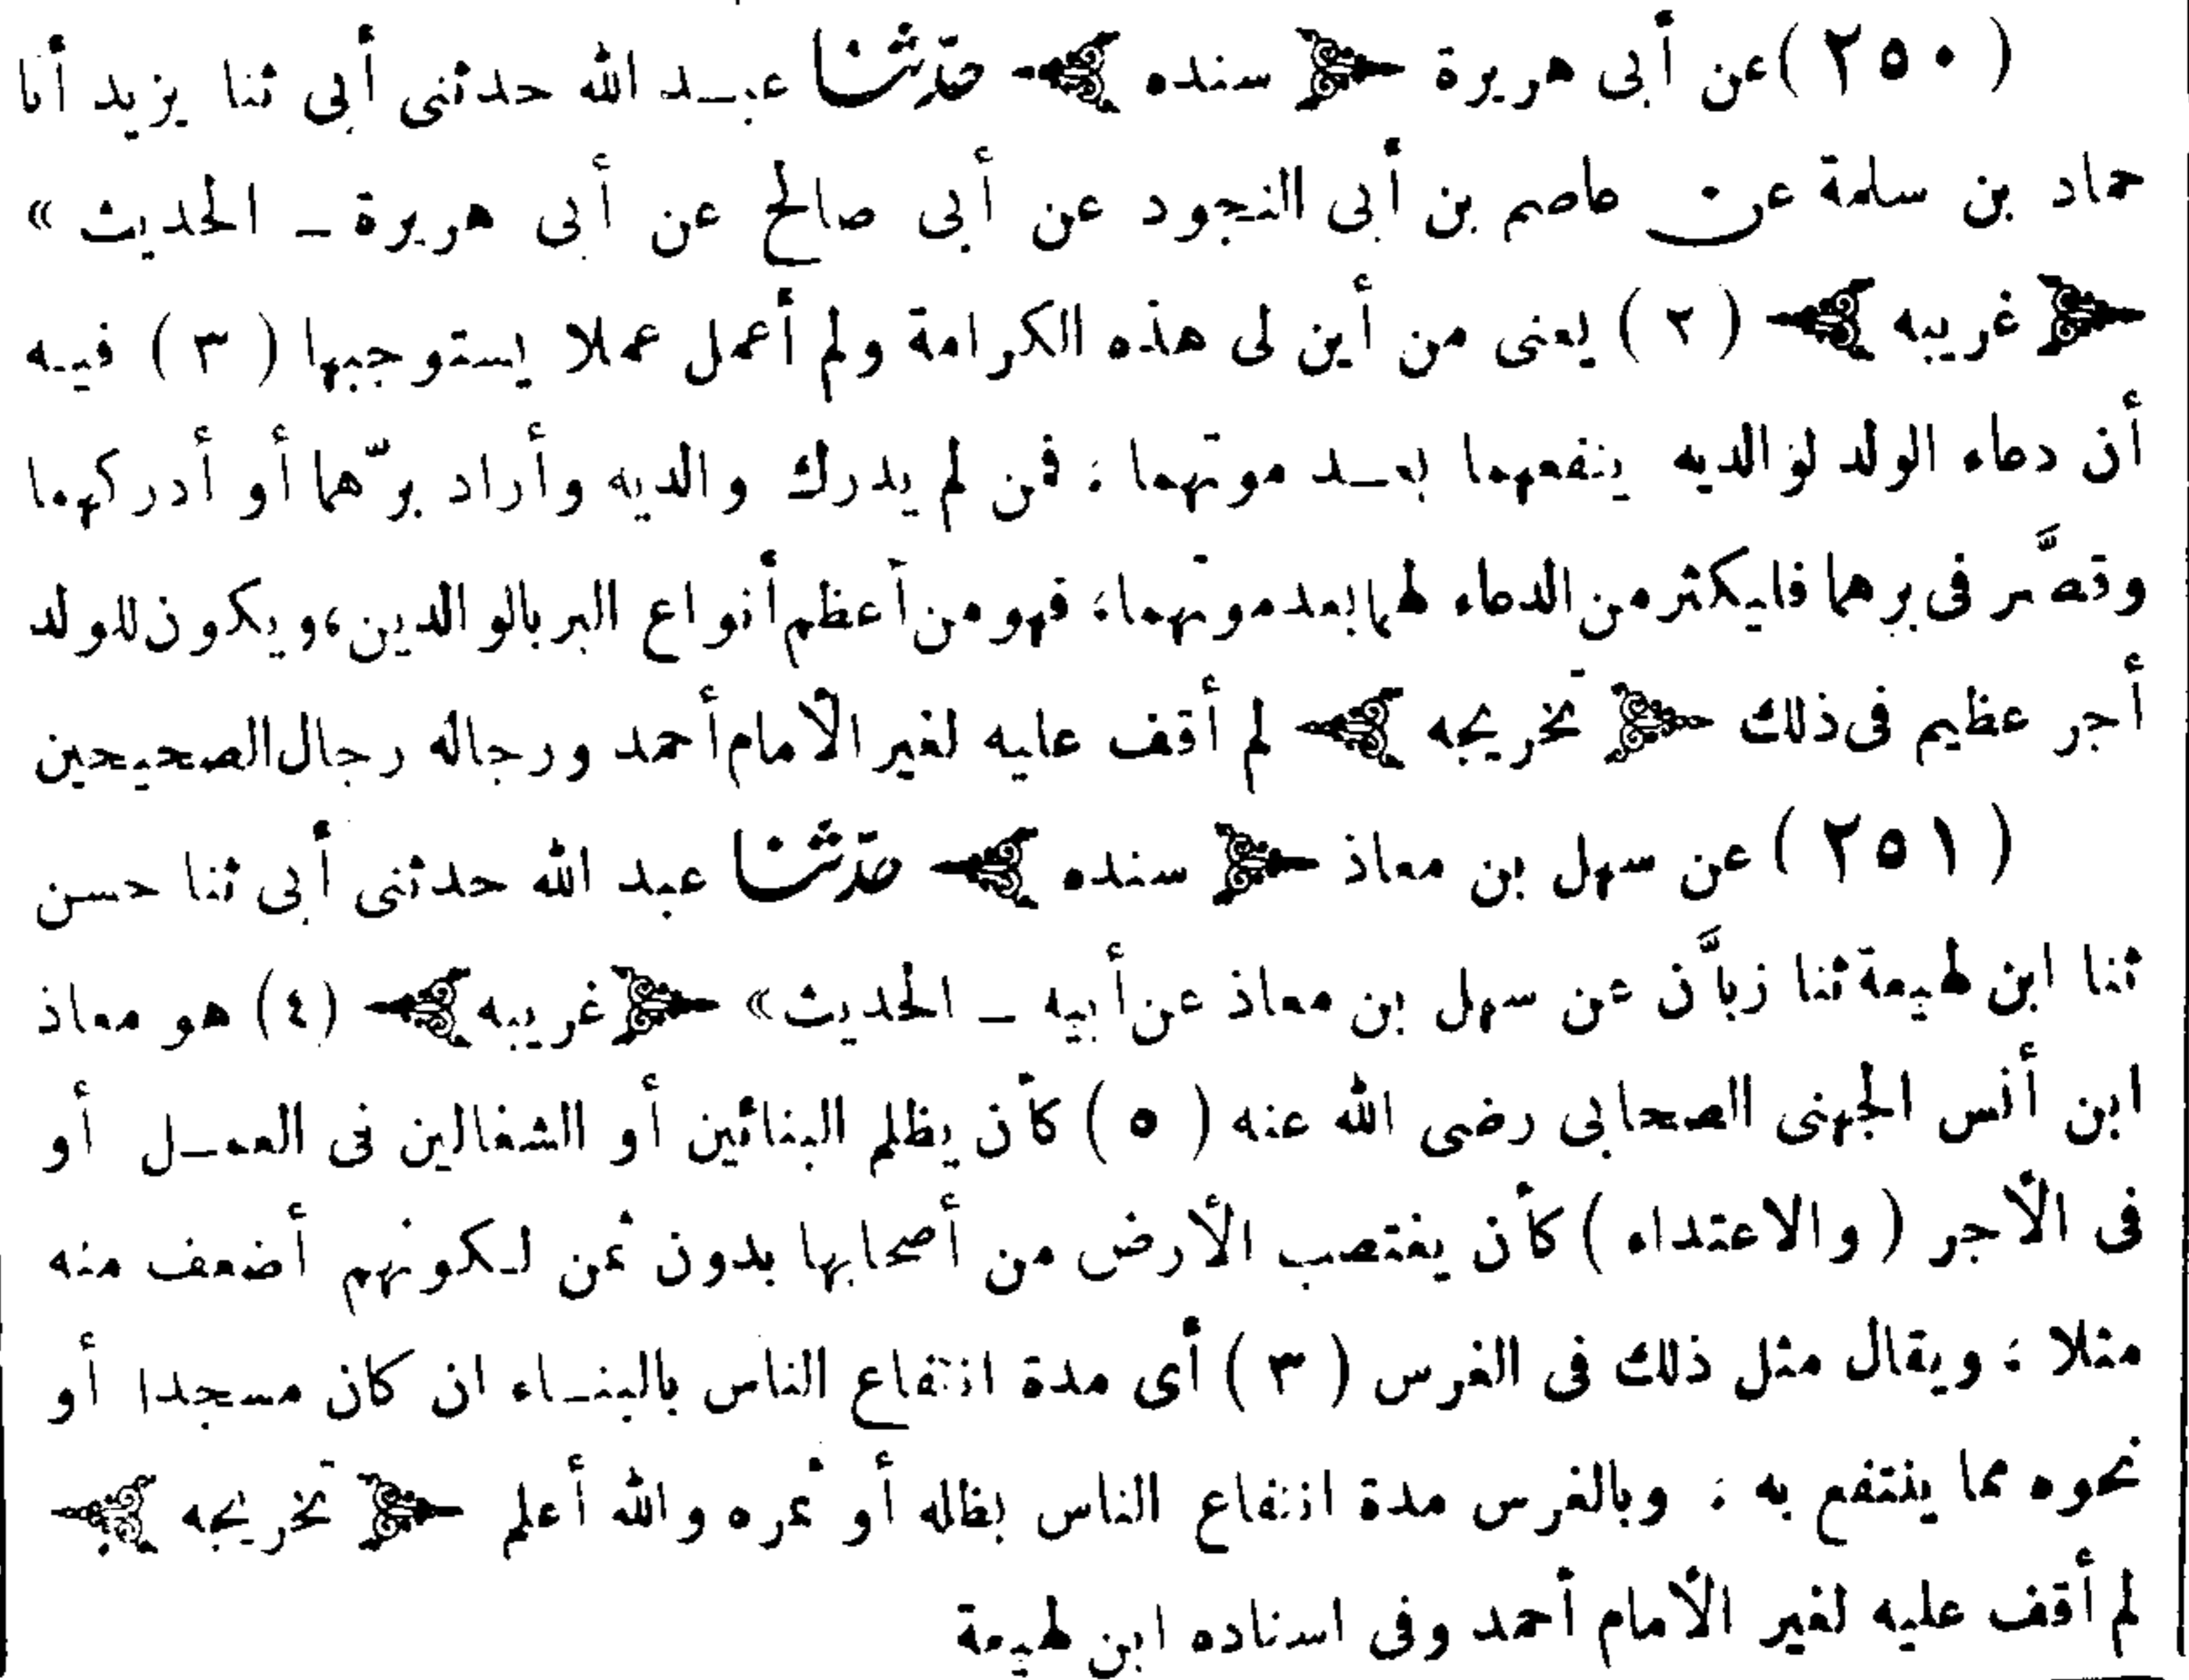 ( ٢٥٠ ) عن أبى هريرة ﴿ سنده ﴾ حدّثنا عبد الله حدثنى أبى ثنا يزيد أنا
حماد بن سلمة عن عاصم بن أبى النجود عن أبى صالح عن أبى هريرة ـ الحديث »
﴿ غريبه ﴾ ( ٢ ) يعنى من أين لى هذه الكرامة ولم أعمل عملا يستوجبها ( ٣ ) فيه
أن دعاء الولد لوالديه ينفعهما بعد موتهما ، فمن لم يدرك والديه وأراد برّهما أو أدركهما
وقصَّر فى برهما فليكثر من الدعاء لهما بعد موتهما، فهو من أعظم أنواع البر بالوالدين، ويكون للولد
أجر عظيم فى ذلك ﴿ تخريجه ﴾ لم أقف عليه لغير الأمام أحمد ورجاله رجال الصحيحين
( ٢٥١ ) عن سهل بن معاذ ﴿ سنده ﴾ حدّثنا عبد الله حدثنى أبى ثنا حسن
ثنا ابن لهيعة ثنا زبَّان عن سهل بن معاذ عن أبيه ـ الحديث» ﴿ غريبه ﴾ (٤) هو معاذ
ابن أنس الجهنى الصحابى رضى الله عنه ( ٥ ) كأن يظلم البنائين أو الشغالين فى العمل أو
فى الأجر ( والاعتداء ) كأن يغتصب الأرض من أصحابها بدون ثمن لكونهم أضعف منه
مثلا ، ويقال مثل ذلك فى الغرس ( ٣ ) أى مدة انتفاع الناس بالبناء ان كان مسجدا أو
نحوه مما ينتفع به ، وبالغرس مدة انتفاع الناس بظله أو ثمره والله أعلم ﴿ تخريجه ﴾
لم أقف عليه لغير الأمام أحمد وفى اسناده ابن لهيعة